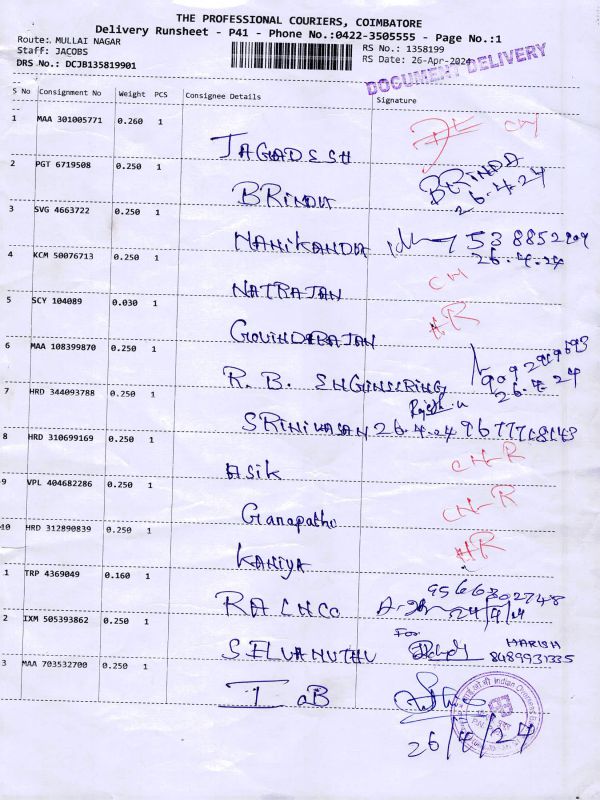 THE PROFESSIONAL COURIERS, COIMBATORE
Delivery Runsheet - P41 - Phone No.:0422-3505555 - Page No.:1
Route:. MULLAI NAGAR
Staff: JACOBS RS No.: 1358199
DRS No.: DCJB135819901 RS Date: 26-Apr-2024
DOCUMENT DELIVERY
S No Consignment No Weight PCS Consignee Details Signature
1 MAA 301005771 0.260 1
JAGADESH CM
2 PGT 6719508 0.250 1
BRINDA BRINDA
26.4.24
3 SVG 4663722 0.250 1
MANIKANDAN
26.4.24
4 KCM 50076713 0.250 1
NATRAJAN CM
5 SCY 104089 0.030 1
GOVINDARAJAN AR
6 MAA 108399870 0.250 1
R. B. ENGINEERING
26.4.24
7 HRD 344093788 0.250 1
SRINIVASAN 26.4.24
8 HRD 310699169 0.250 1
ASIK CN-R
9 VPL 404682286 0.250 1
Ganapathi CN-R
10 HRD 312890839 0.250 1
KANIYA AR
1 TRP 4369049 0.160 1
RALNCO 9566302748
2 IXM 505393862 0.250 1
SELVAMUTHU For HARISH
8489931335
3 MAA 703532700 0.250 1
I OB
26/4/24